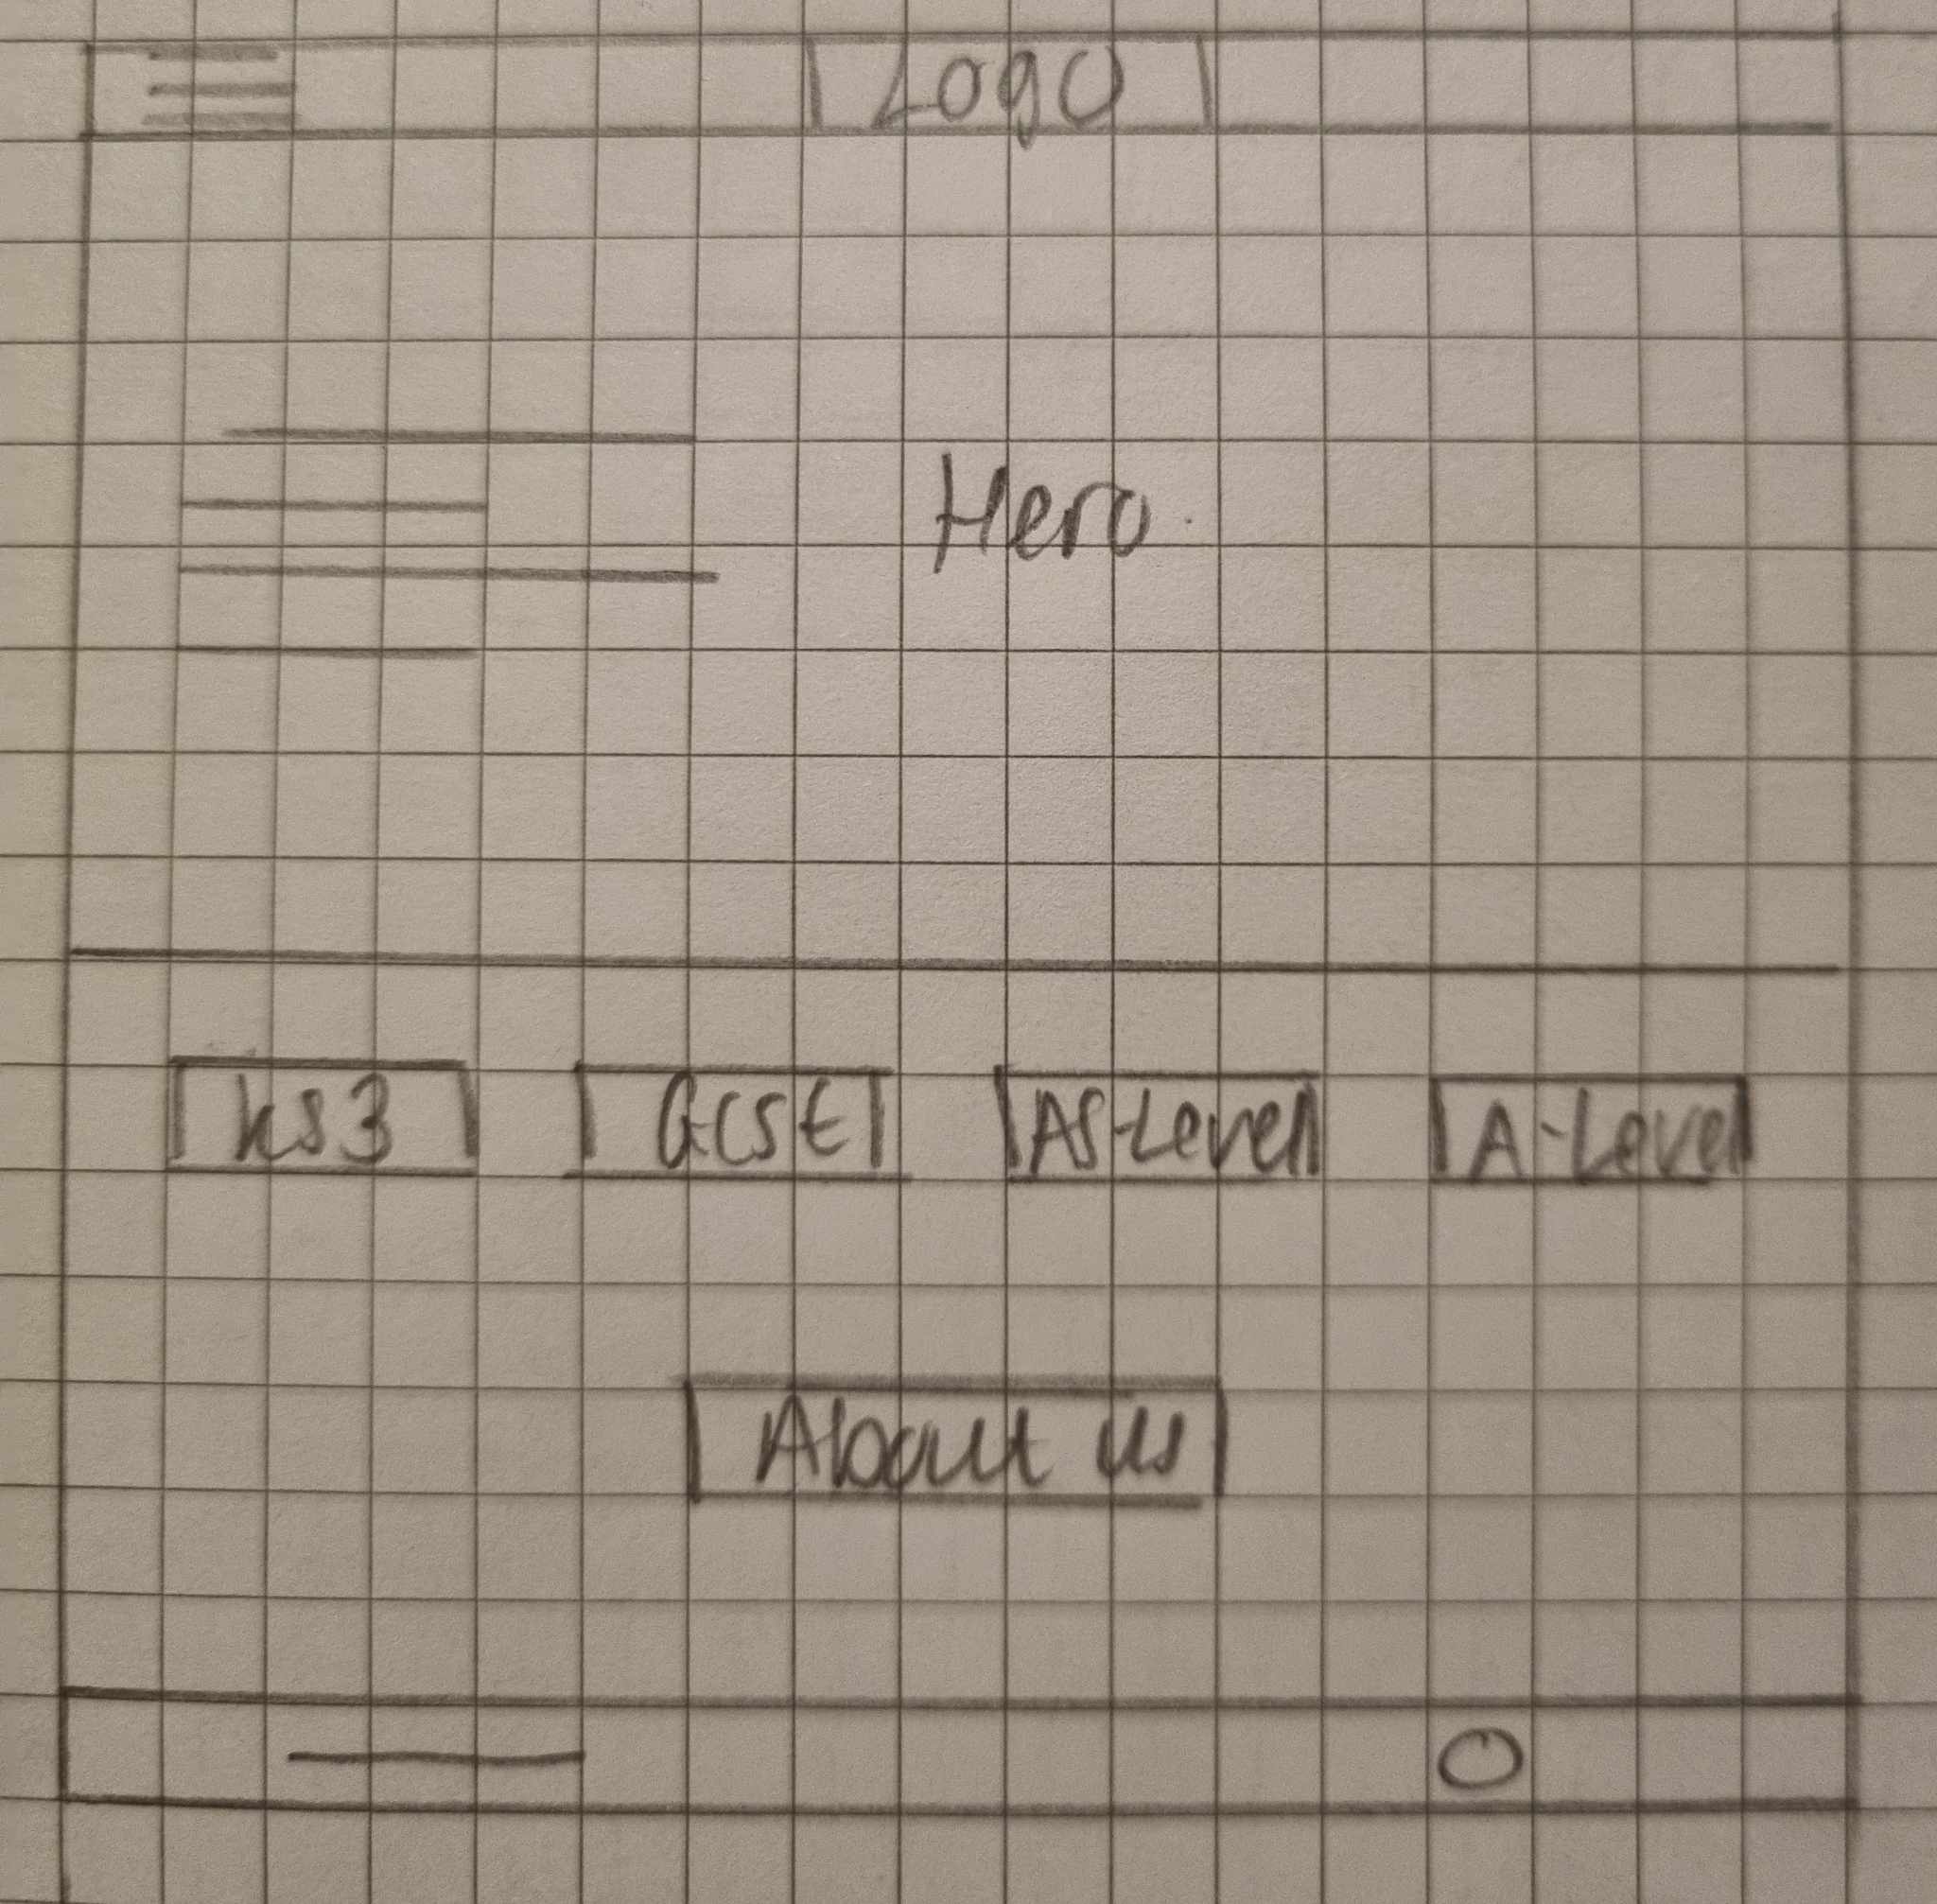 Logo
Hero
KS3 GCSE AS-Level A-Level
About us